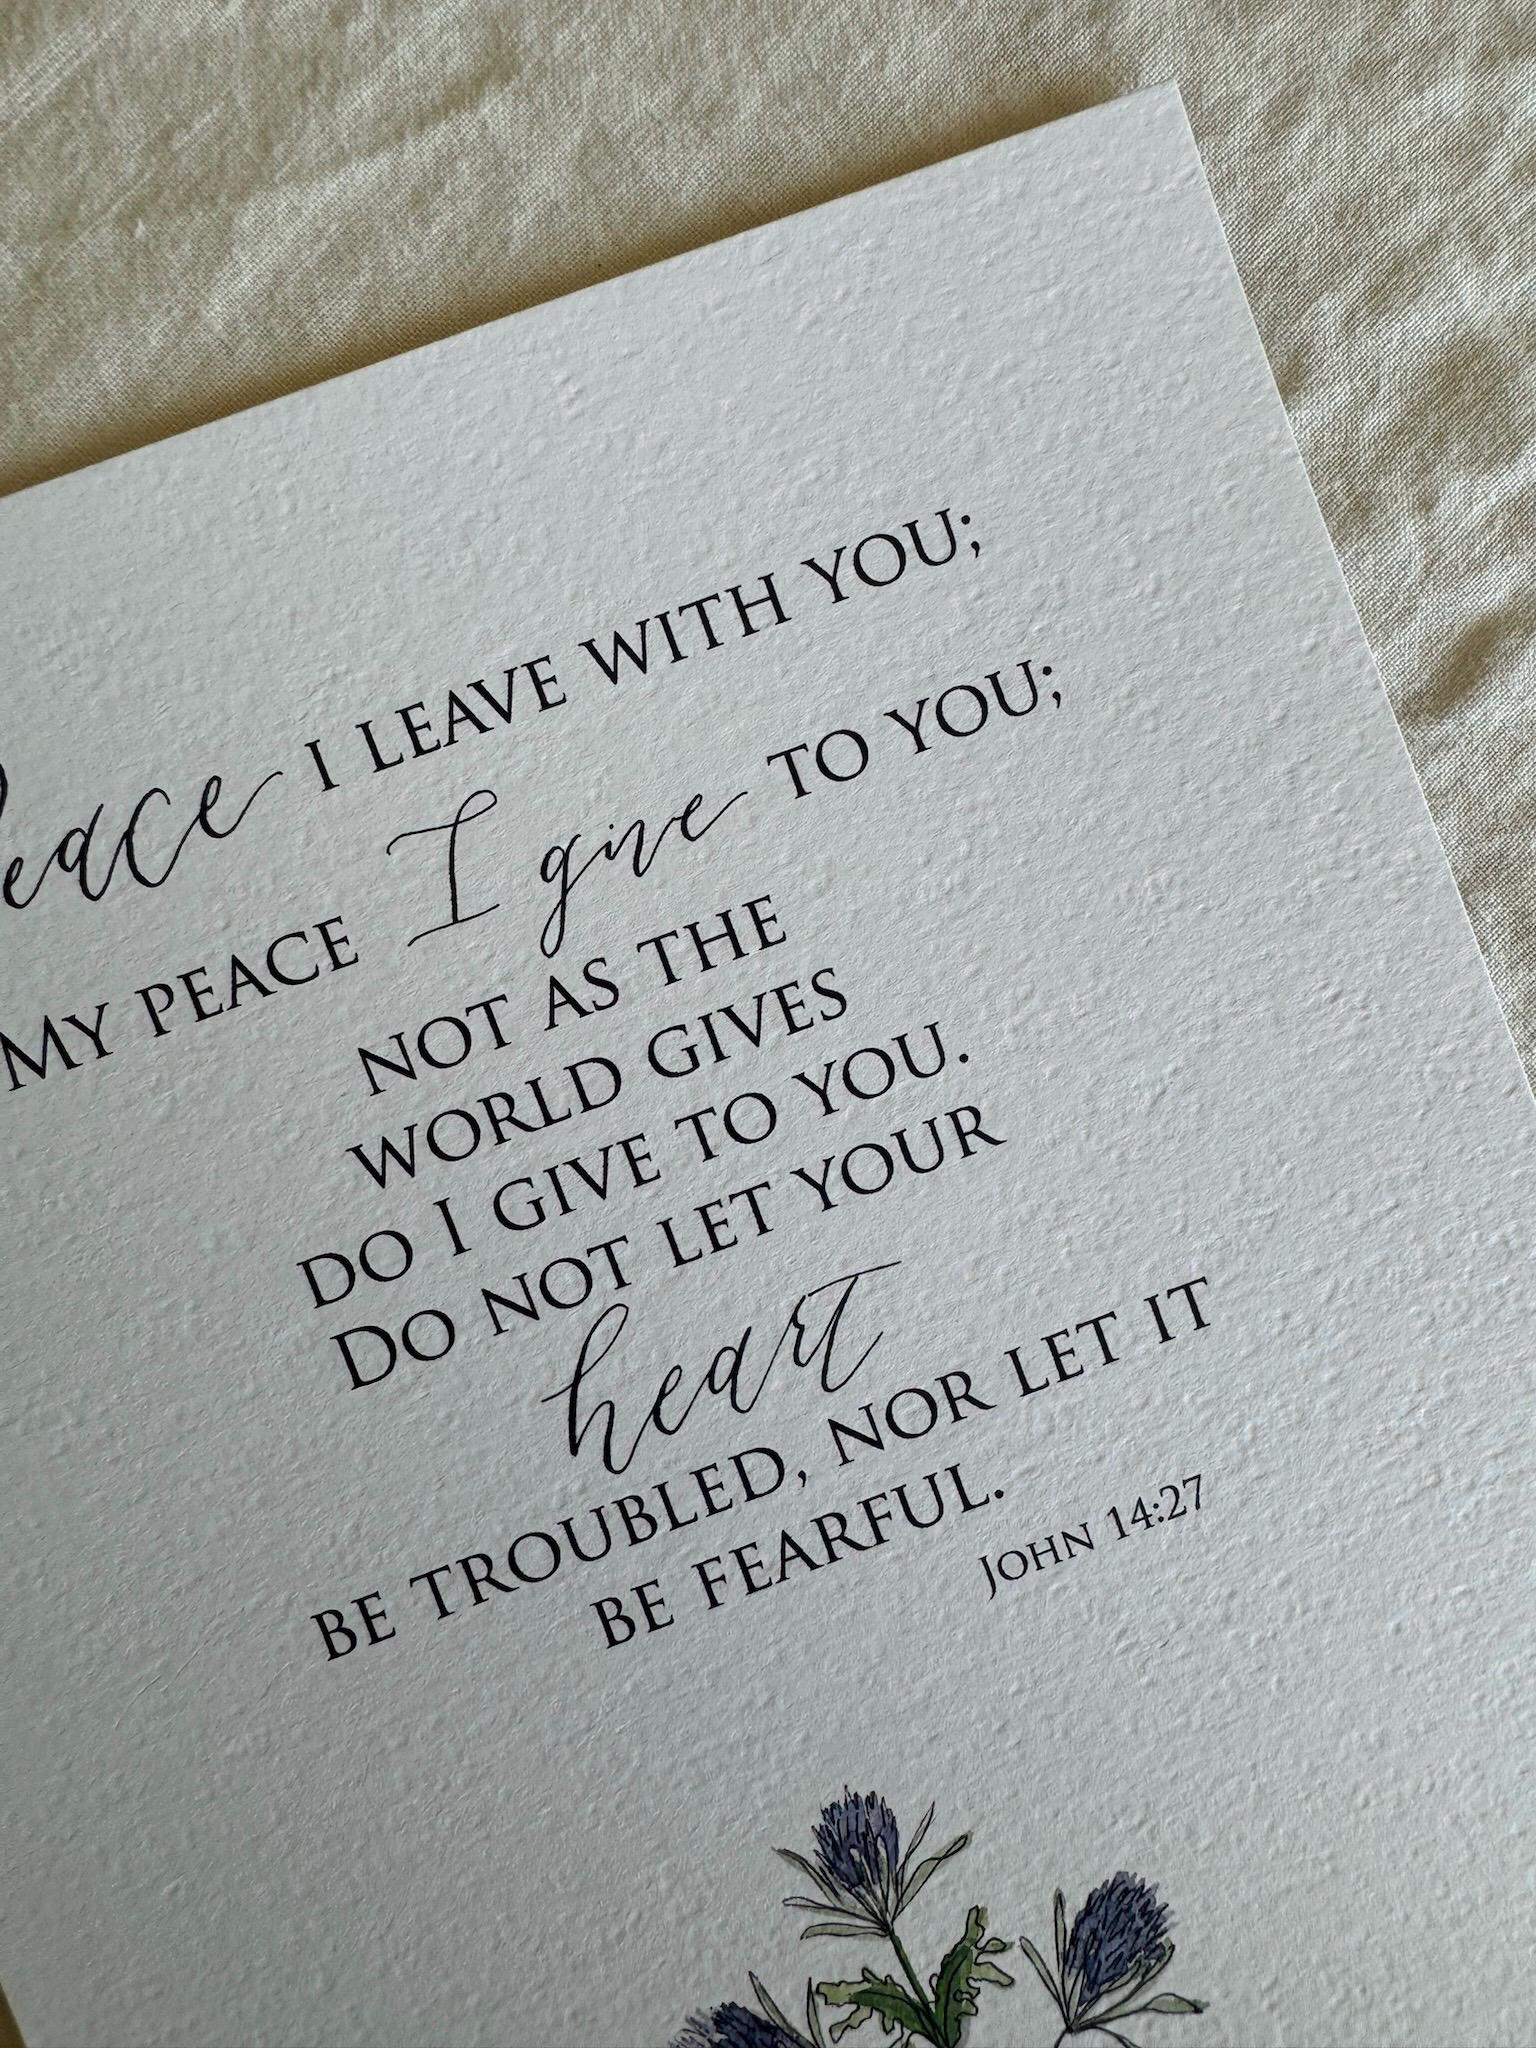 Peace I LEAVE WITH YOU;
MY PEACE I give TO YOU;
NOT AS THE
WORLD GIVES
DO I GIVE TO YOU.
DO NOT LET YOUR
heart
BE TROUBLED, NOR LET IT
BE FEARFUL.
JOHN 14:27